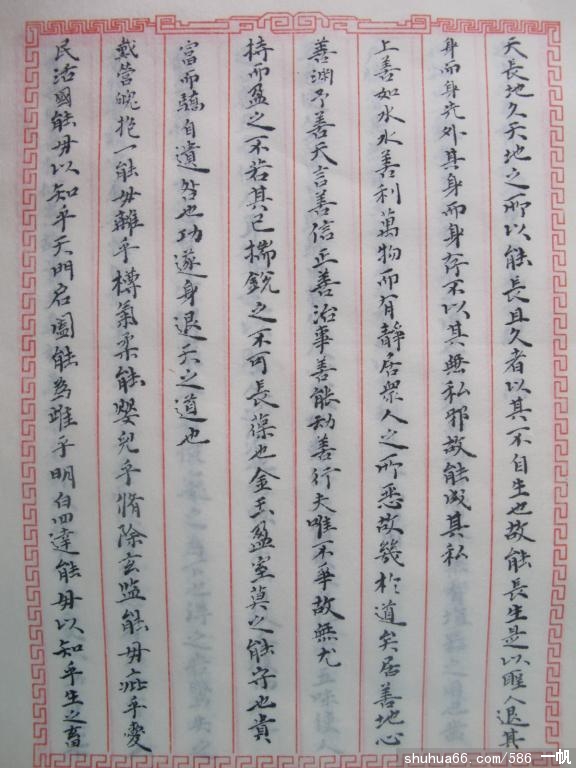 天長地久天地之所以能長且久者以其不自生也故能長生是以聖人退其
身而身先外其身而身存不以其無私邪故能成其私
上善如水水善利萬物而有靜居衆人之所惡故幾於道矣居善地心
善淵予善天言善信正善治事善能動善行夫唯不爭故無尤
持而盈之不若其已揣銳之不可長葆也金玉盈室莫之能守也貴
富而驕自遺咎也功遂身退天之道也
戴營魄抱一能毋離乎槫氣柔能嬰兒乎脩除玄監能毋疵乎愛
民活國能毋以知乎天門启闔能為雌乎明白四達能毋以知乎生之畜
shuhua66.com/586 一帆